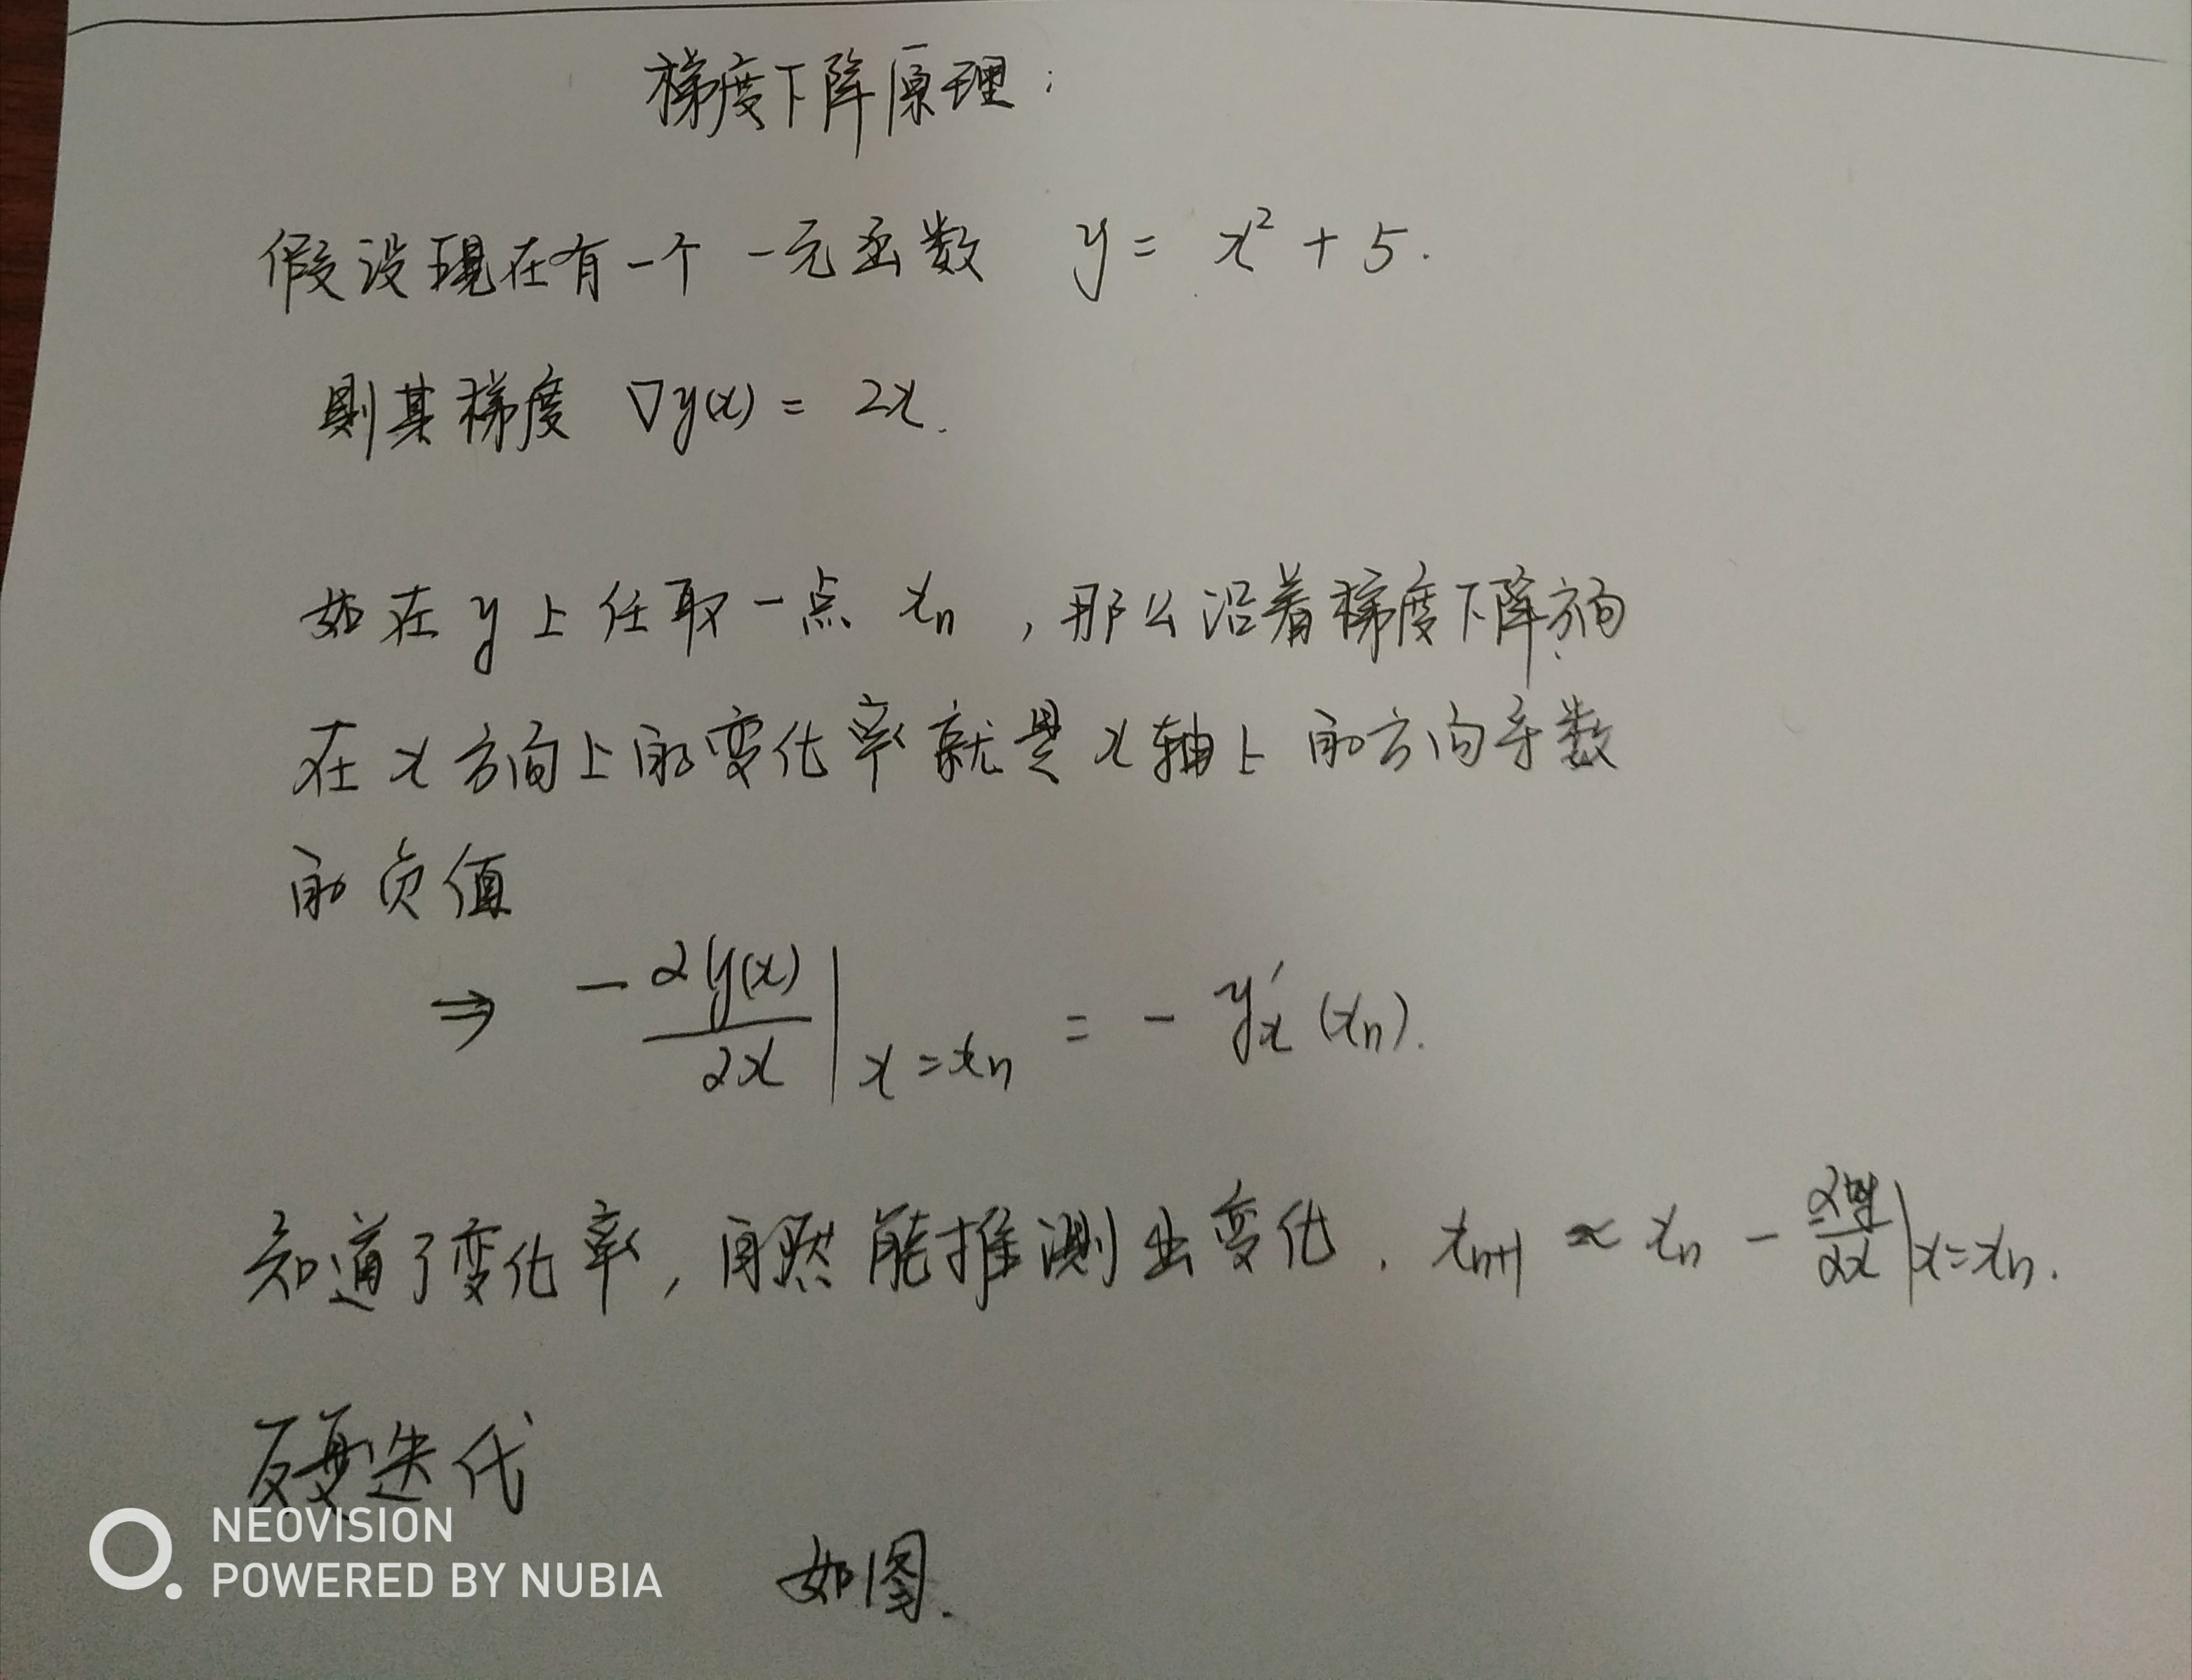 梯度下降原理:
假设现在有一个 一元函数 y = x² + 5.
则其梯度 ∇y(x) = 2x.
如在 y 上任取一点 xₙ , 那么沿着梯度下降方向
在 x 方向上的变化率就是 x轴上的方向导数
的负值
⇒ -∂y(x)/∂x |x=xₙ = - y'ₓ (xₙ).
知道了变化率, 自然能推测出变化, xₙ₊₁ ≈ xₙ - ∂y/∂x |x=xₙ.
反复迭代
如图.
NEOVISION
POWERED BY NUBIA